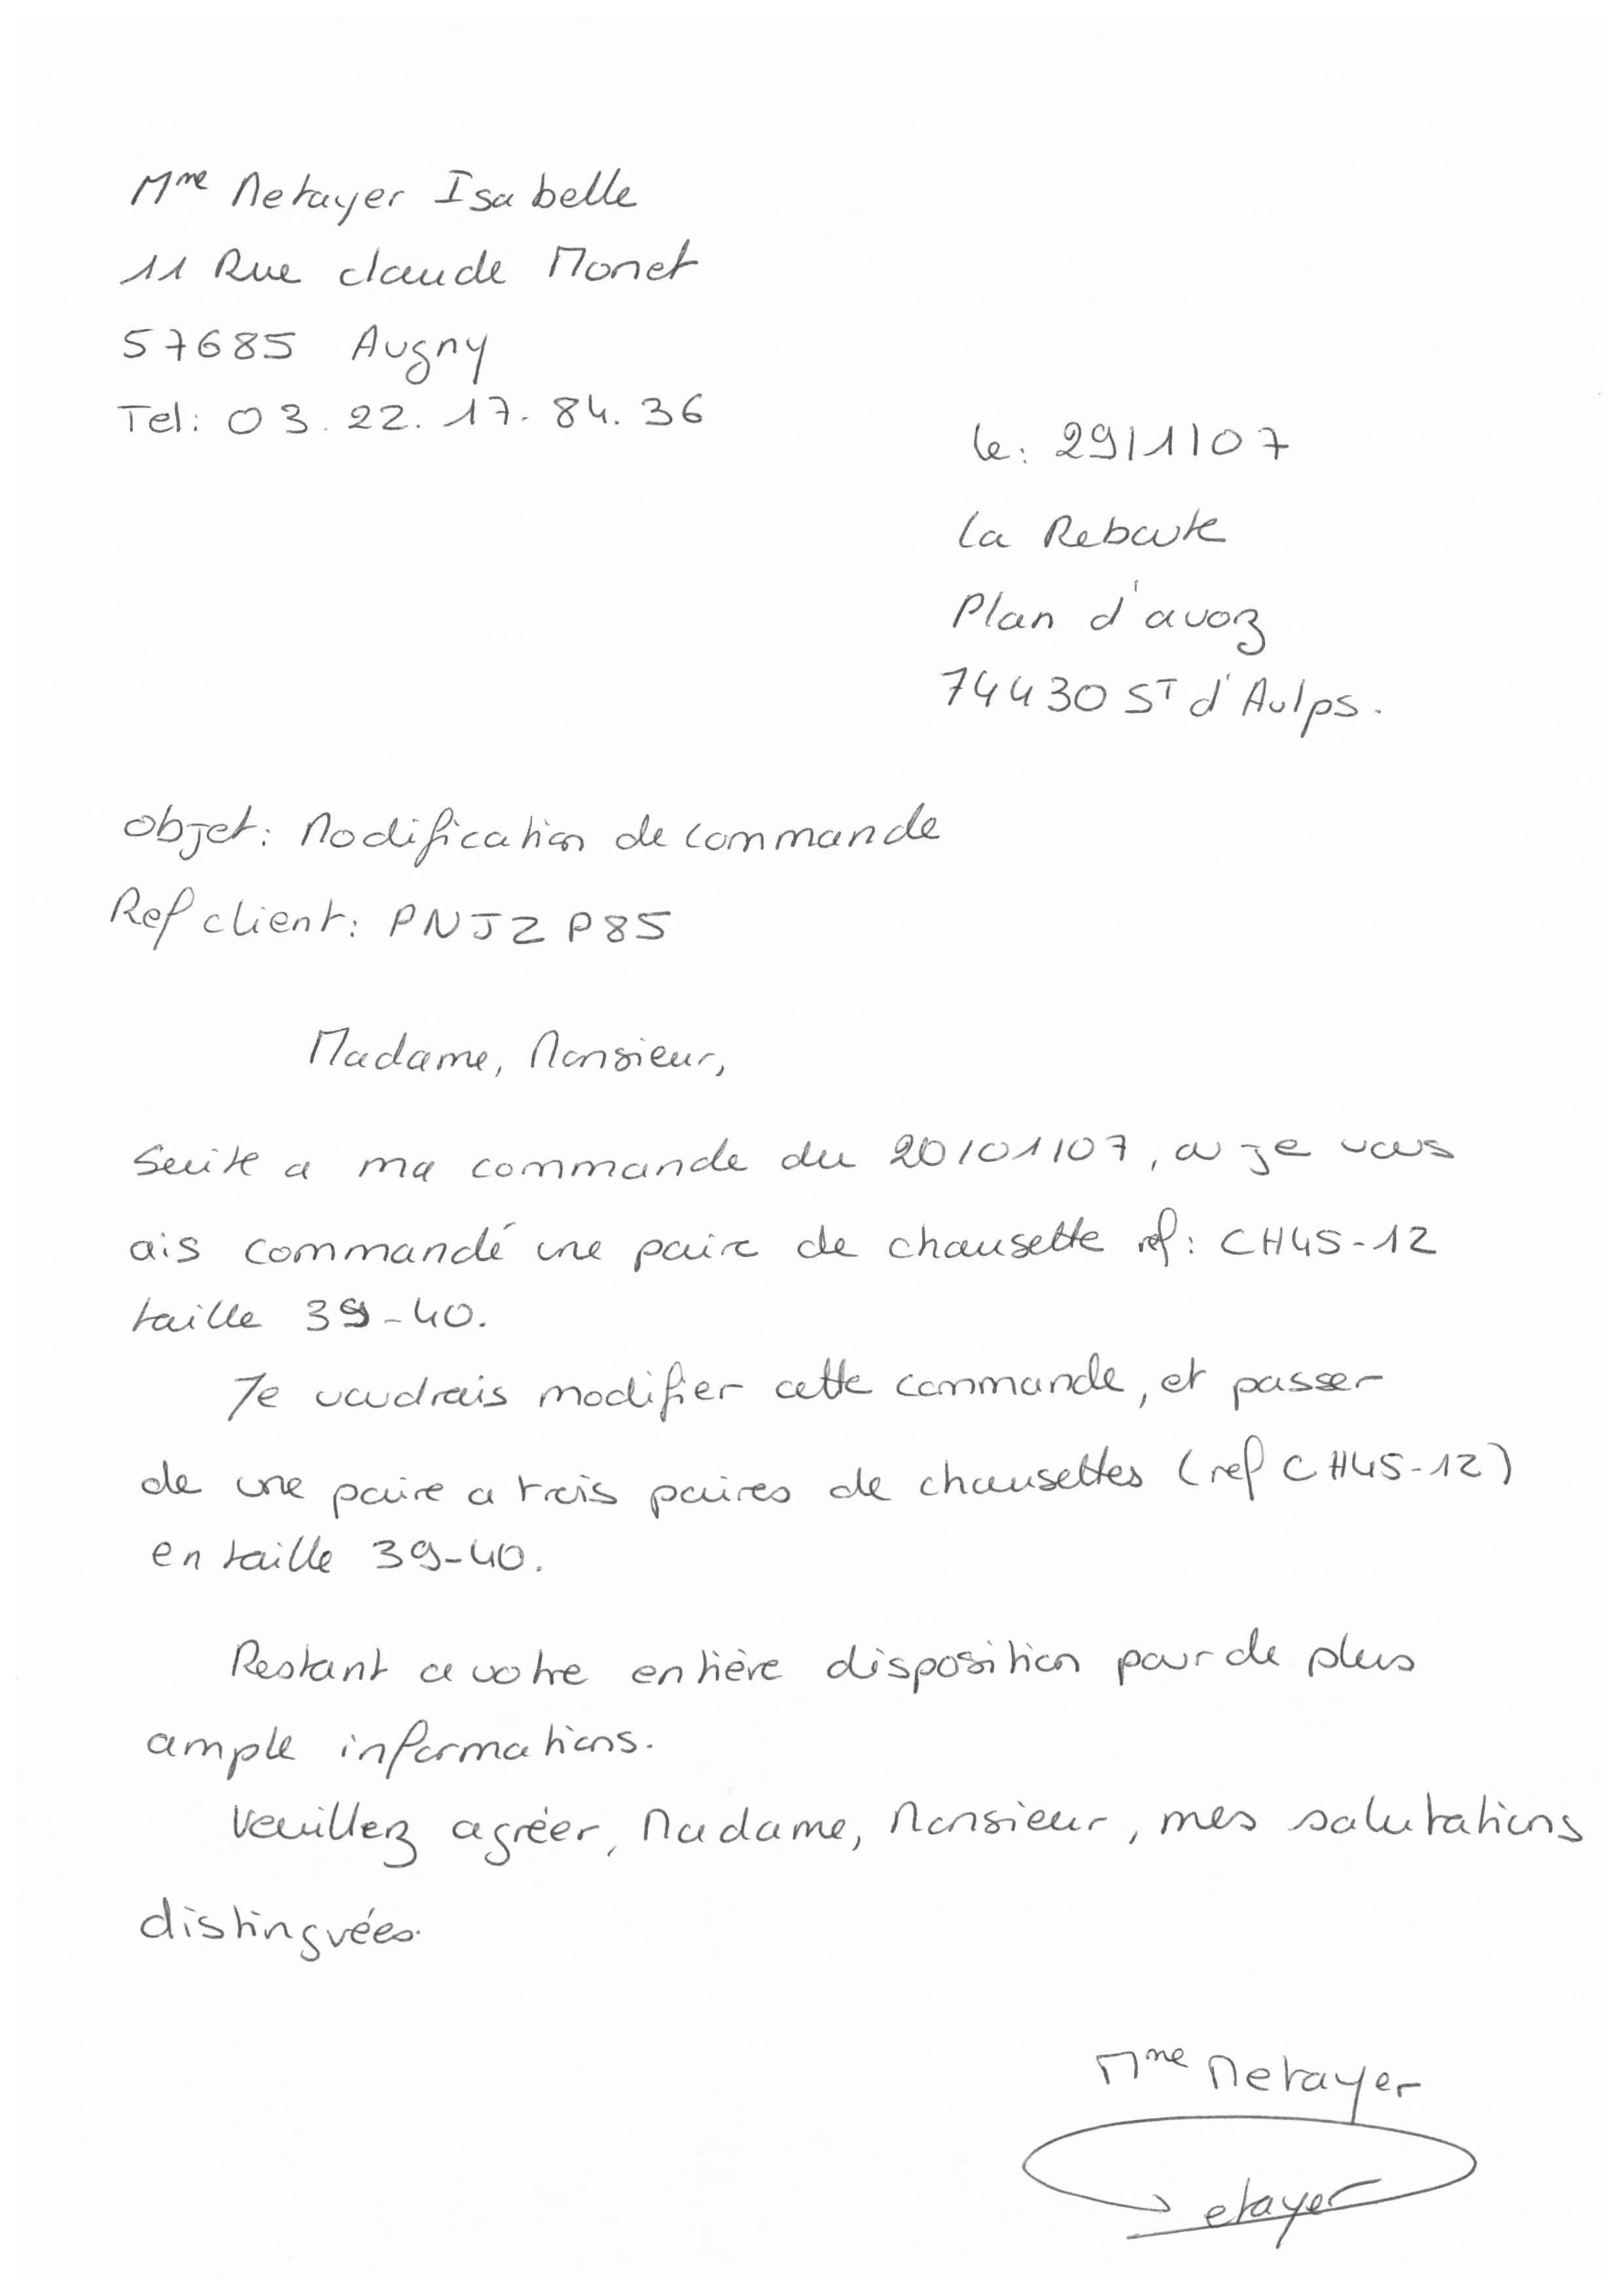 Mme Metayer Isabelle
11 Rue claude Monet
57685 Augny
Tel: 03.22.17.84.36
le: 29/1/07
La Reboute
Plan d'avoz
74430 ST d'Aulps.
Objet: Modification de commande
Ref client: PNJZP85
Madame, Monsieur,
Suite a ma commande du 20/01/07, ou je vous
ais commandé une paire de chausette ref: CH45-12
taille 39-40.
Je voudrais modifier cette commande, et passer
de une paire a trois paires de chausettes (ref CH45-12)
en taille 39-40.
Restant a votre entière disposition pour de plus
ample informations.
Veuillez agréer, Madame, Monsieur, mes salutations
distinguées.
Mme Metayer
etayer